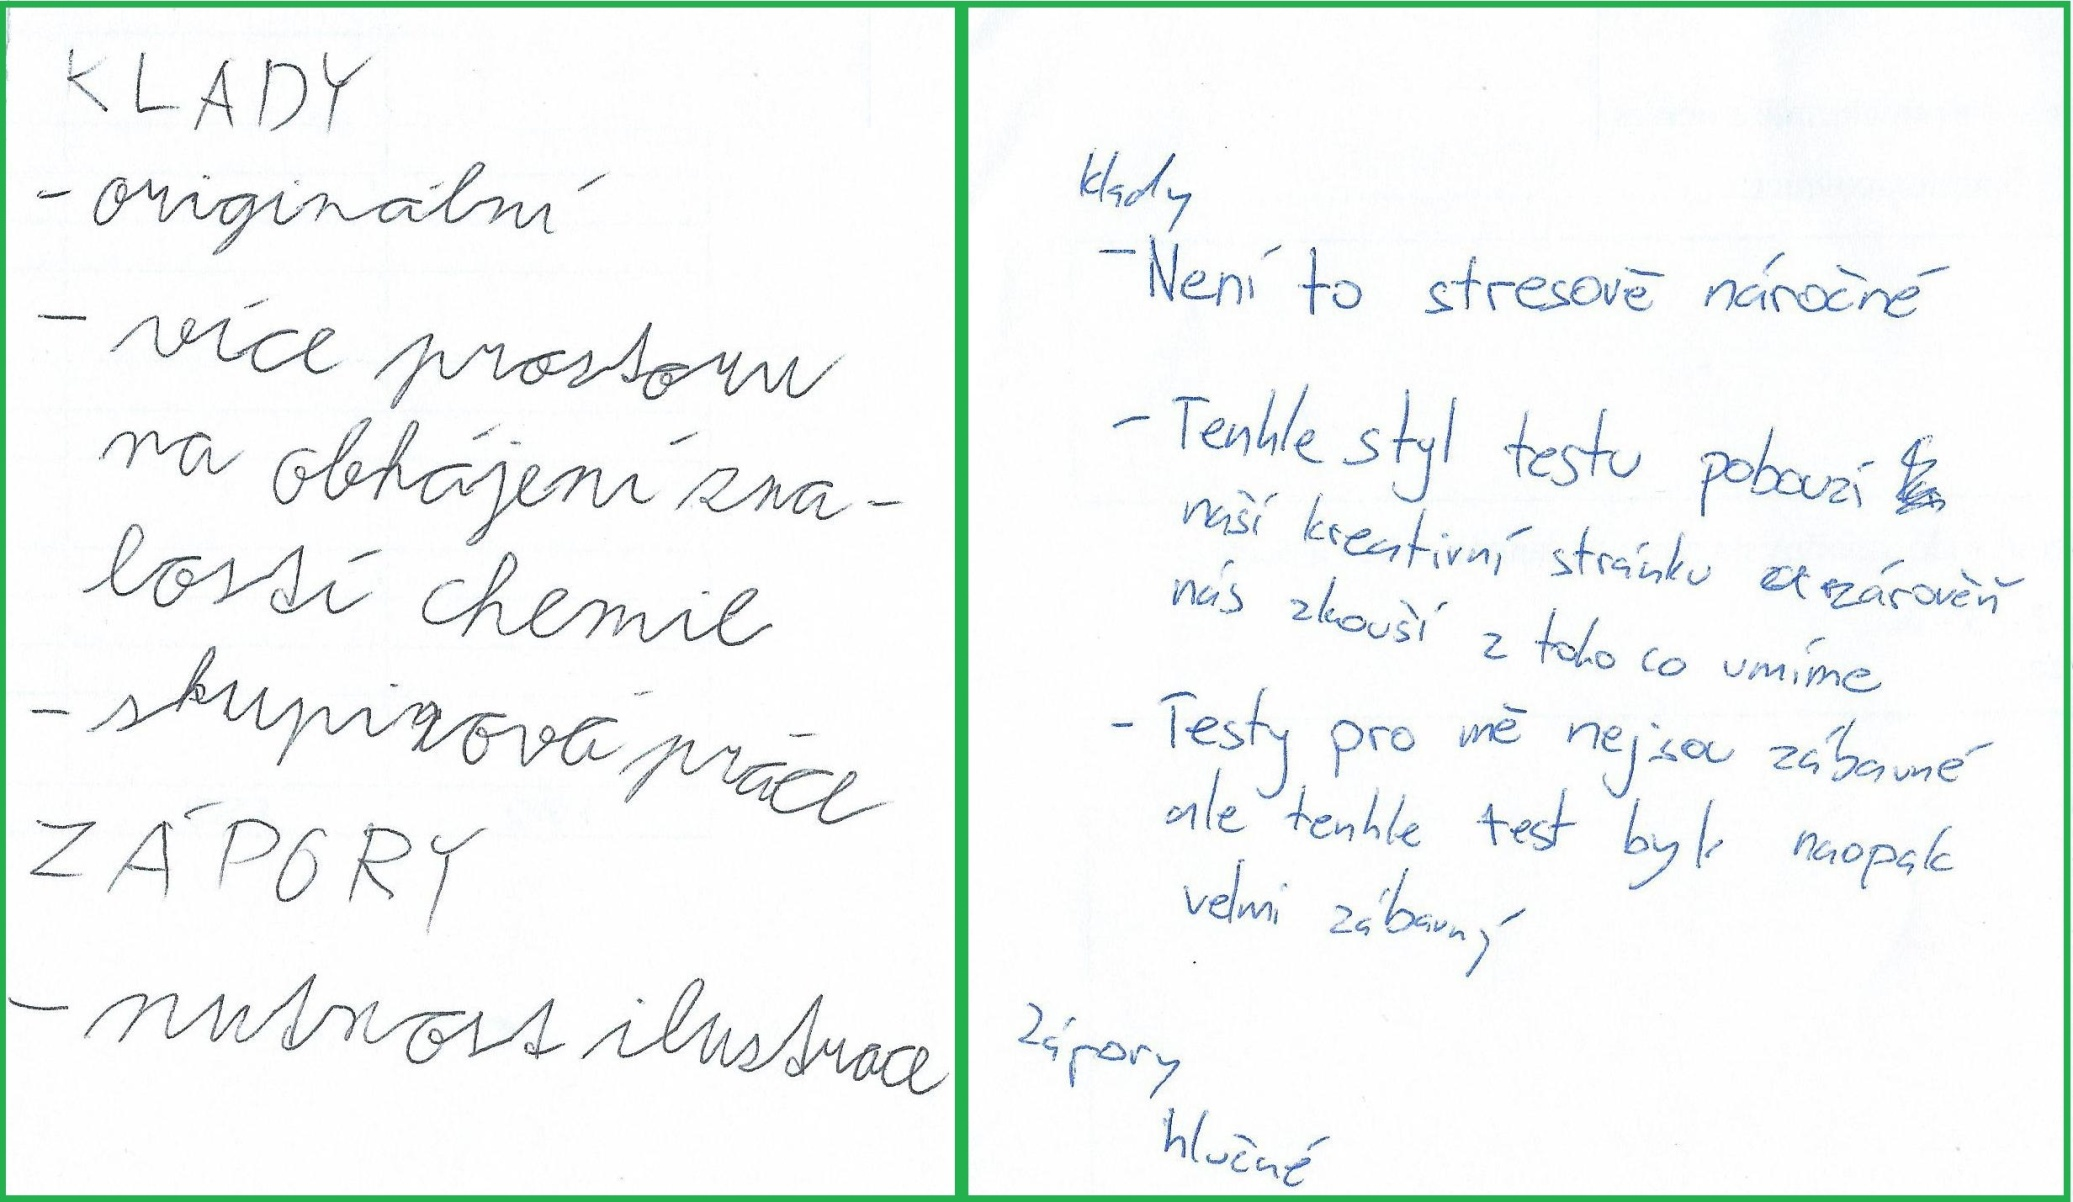 KLADY
- originální
- více prostoru
na obhájení zna-
lostí chemie
- skupinová práce
ZÁPORY
- nutnost ilustrace
klady
- Není to stresově náročné
- Tenhle styl testu pobouzí
naší kreativní stránku a zárověň
nás zkouší z toho co umíme
- Testy pro mě nejsou zábavné
ale tenhle test byl naopak
velmi zábavný
Zápory
hlučné